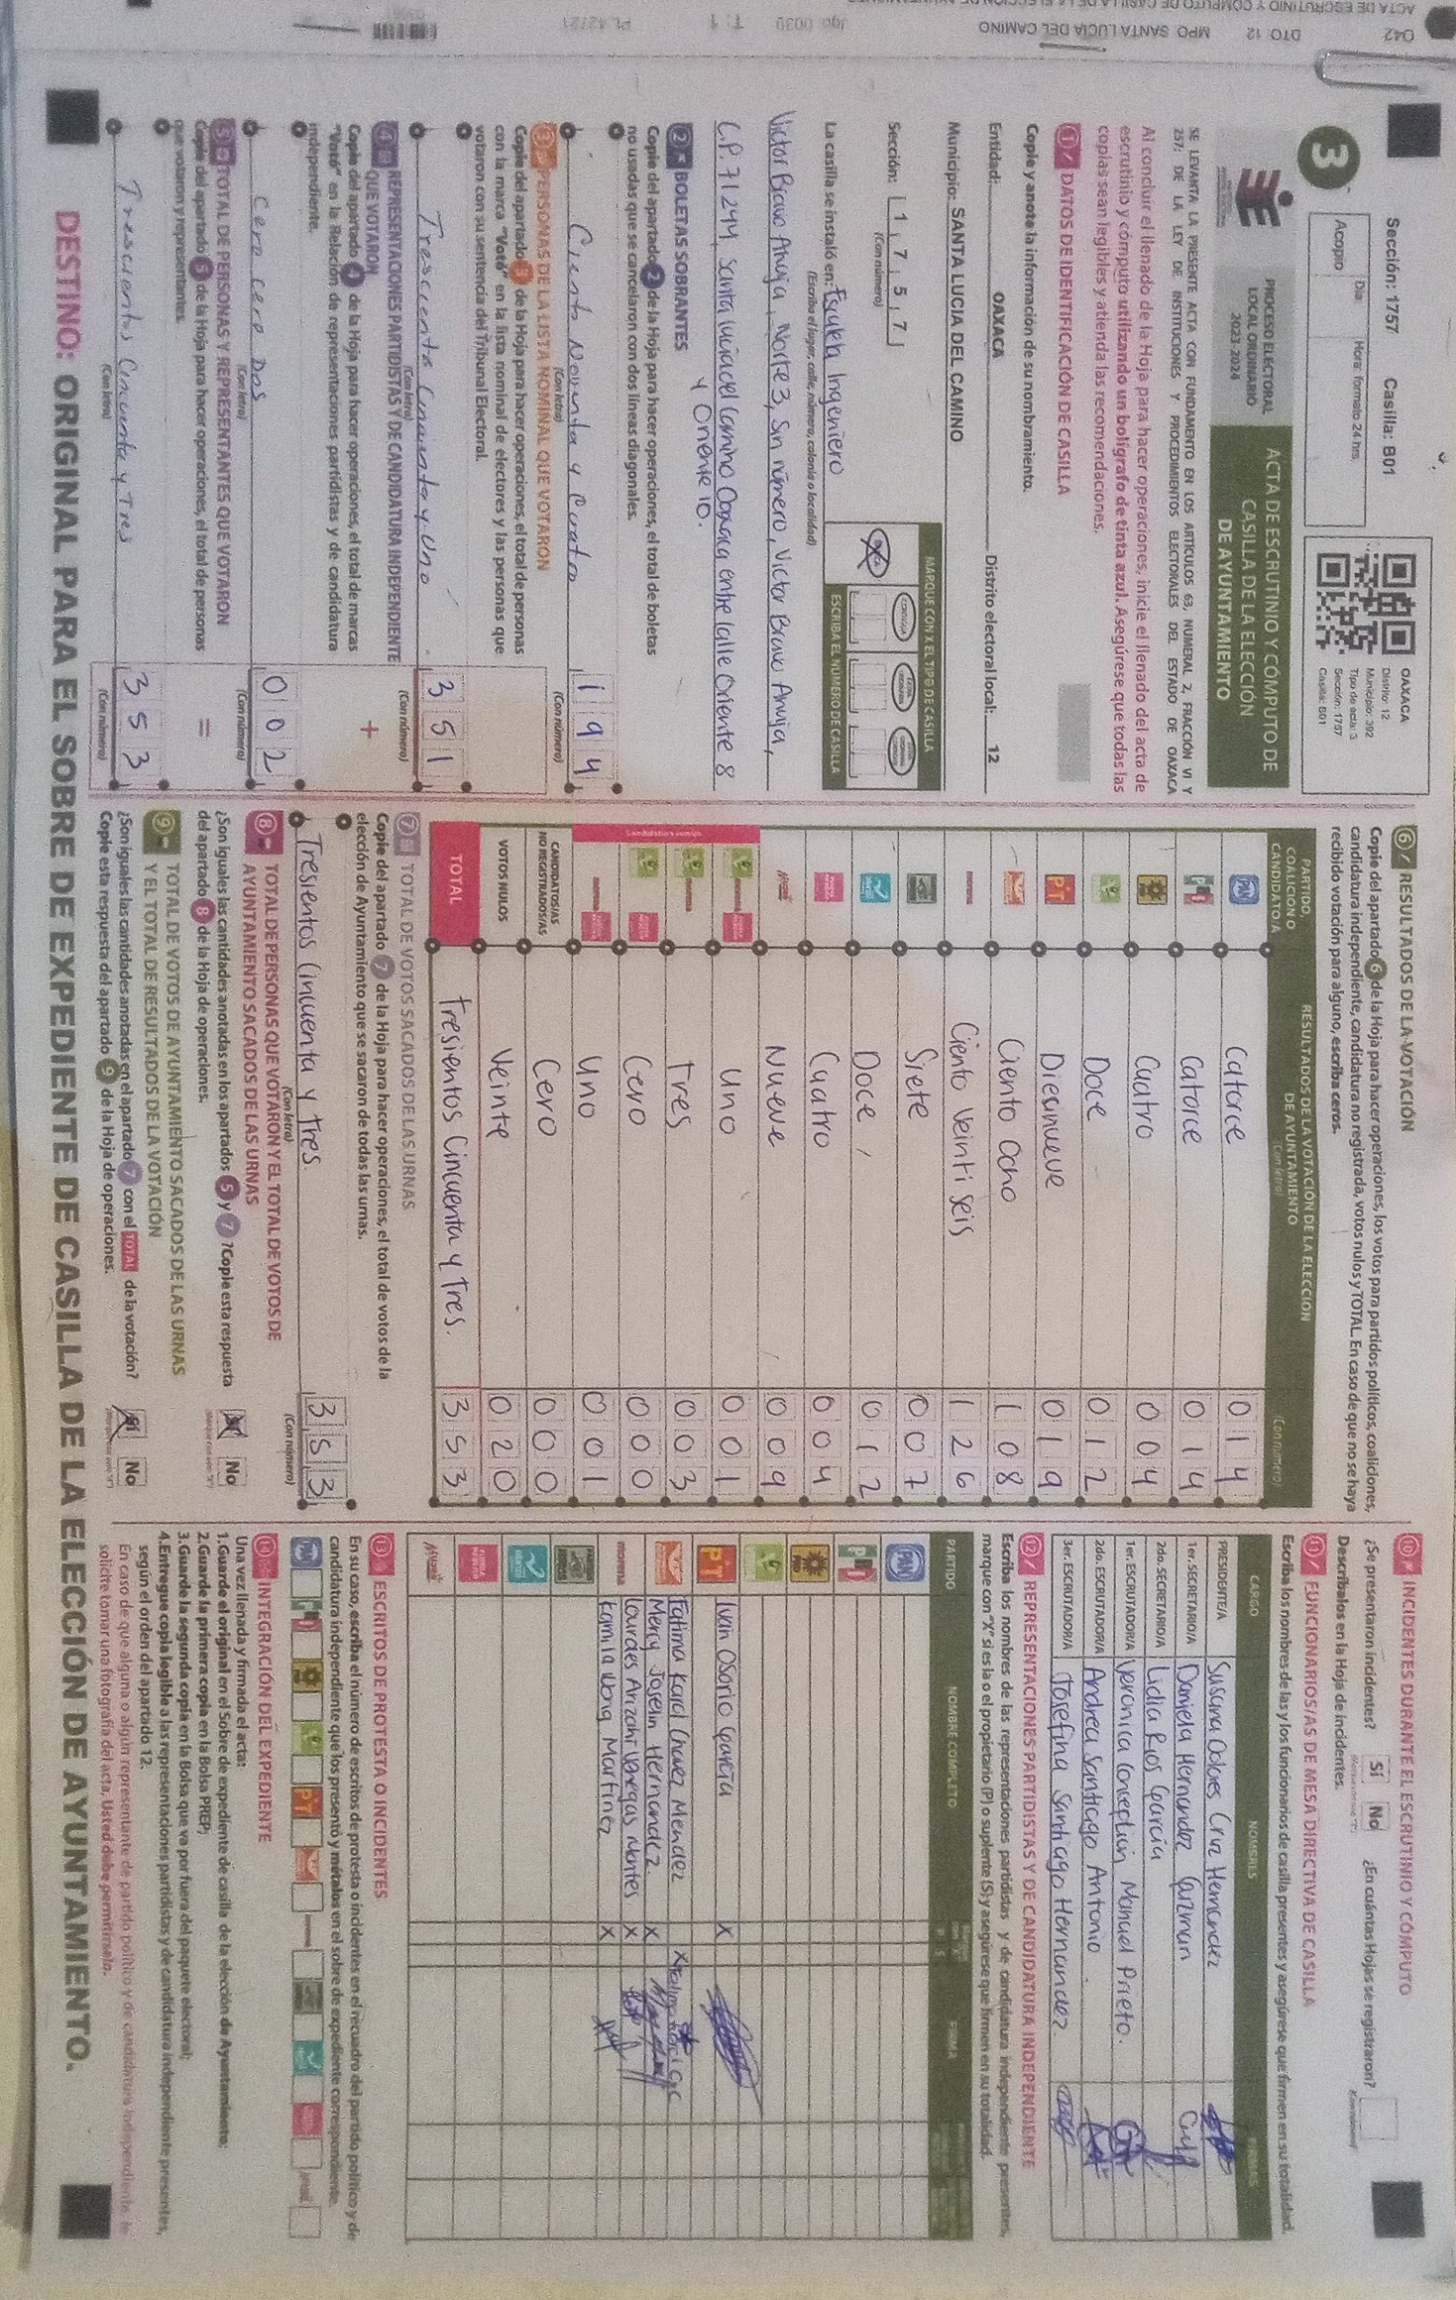 042 DTO 12 MPO SANTA LUCIA DEL CAMINO
Sección: 1757 Casilla: B01
3
Día: Hora: formato 24 hrs.
Acopio
OAXACA
Distrito: 12
Municipio: 392
Tipo de acta: 3
Sección: 1757
Casilla: B01
PROCESO ELECTORAL
LOCAL ORDINARIO
2023-2024
ACTA DE ESCRUTINIO Y CÓMPUTO DE
CASILLA DE LA ELECCIÓN
DE AYUNTAMIENTO
SE LEVANTA LA PRESENTE ACTA CON FUNDAMENTO EN LOS ARTÍCULOS 63, NUMERAL 2, FRACCIÓN VI Y
257; DE LA LEY DE INSTITUCIONES Y PROCEDIMIENTOS ELECTORALES DEL ESTADO DE OAXACA
Al concluir el llenado de la Hoja para hacer operaciones, inicie el llenado del acta de
escrutinio y cómputo utilizando un bolígrafo de tinta azul. Asegúrese que todas las
copias sean legibles y atienda las recomendaciones.
1 DATOS DE IDENTIFICACIÓN DE CASILLA
Copie y anote la información de su nombramiento.
Entidad: OAXACA Distrito electoral local: 12
Municipio: SANTA LUCIA DEL CAMINO
Sección: 1 7 5 7
(Con número)
MARQUE CON X EL TIPO DE CASILLA
ESCRIBA EL NÚMERO DE CASILLA
La casilla se instaló en: Escuela Ingeniero
(Escriba el lugar, calle, número, colonia o localidad)
Victor Bravo Ahuja, Norte 3, Sin número, Victor Bravo Ahuja,
C.P. 71244, Santa lucia del Camino Oaxaca entre calle Oriente 8
y Oriente 10.
2 BOLETAS SOBRANTES
Copie del apartado 2 de la Hoja para hacer operaciones, el total de boletas
no usadas que se cancelaron con dos líneas diagonales.
Ciento Noventa y Cuatro 1 9 4
(Con letra) (Con número)
3 PERSONAS DE LA LISTA NOMINAL QUE VOTARON
Copie del apartado 3 de la Hoja para hacer operaciones, el total de personas
con la marca "Votó" en la lista nominal de electores y las personas que
votaron con su sentencia del Tribunal Electoral.
Trescientos Cincuenta y Uno 3 5 1
(Con letra) (Con número)
4 REPRESENTACIONES PARTIDISTAS Y DE CANDIDATURA INDEPENDIENTE
QUE VOTARON
Copie del apartado 4 de la Hoja para hacer operaciones, el total de marcas
"Votó" en la Relación de representaciones partidistas y de candidatura
independiente.
+
Cero Cero Dos 0 0 2
(Con letra) (Con número)
5 TOTAL DE PERSONAS Y REPRESENTANTES QUE VOTARON
Copie del apartado 5 de la Hoja para hacer operaciones, el total de personas
que votaron y representantes.
=
Trescientos Cincuenta y Tres 3 5 3
(Con letra) (Con número)
6 RESULTADOS DE LA VOTACIÓN
Copie del apartado 6 de la Hoja para hacer operaciones, los votos para partidos políticos, coaliciones,
candidatura independiente, candidatura no registrada, votos nulos y TOTAL. En caso de que no se haya
recibido votación para alguno, escriba ceros.
PARTIDO, COALICIÓN O CANDIDATO/A
RESULTADOS DE LA VOTACIÓN DE LA ELECCIÓN DE AYUNTAMIENTO
(Con letra) (Con número)
PAN Catorce 0 1 4
PRI Catorce 0 1 4
PRD Cuatro 0 0 4
Doce 0 1 2
PT Diecinueve 0 1 9
Ciento Ocho 1 0 8
morena Ciento Veinti Seis 1 2 6
Siete 0 0 7
Doce 0 1 2
Cuatro 0 0 4
Nueve 0 0 9
Candidatura común
Uno 0 0 1
Tres 0 0 3
Cero 0 0 0
Uno 0 0 1
CANDIDATOS/AS NO REGISTRADOS/AS Cero 0 0 0
VOTOS NULOS Veinte 0 2 0
TOTAL Tresientos Cincuenta y Tres. 3 5 3
7 TOTAL DE VOTOS SACADOS DE LAS URNAS
Copie del apartado 7 de la Hoja para hacer operaciones, el total de votos de la
elección de Ayuntamiento que se sacaron de todas las urnas.
Tresientos Cincuenta y Tres. 3 5 3
(Con letra) (Con número)
8 TOTAL DE PERSONAS QUE VOTARON Y EL TOTAL DE VOTOS DE
AYUNTAMIENTO SACADOS DE LAS URNAS
¿Son iguales las cantidades anotadas en los apartados 5 y 7? Copie esta respuesta
del apartado 8 de la Hoja de operaciones.
Sí No
9 TOTAL DE VOTOS DE AYUNTAMIENTO SACADOS DE LAS URNAS
Y EL TOTAL DE RESULTADOS DE LA VOTACIÓN
¿Son iguales las cantidades anotadas en el apartado 7 con el TOTAL de la votación?
Copie esta respuesta del apartado 9 de la Hoja de operaciones.
Sí No
10 INCIDENTES DURANTE EL ESCRUTINIO Y CÓMPUTO
¿Se presentaron incidentes? Sí No ¿En cuántas Hojas se registraron?
Descríbalos en la Hoja de incidentes.
11 FUNCIONARIOS/AS DE MESA DIRECTIVA DE CASILLA
Escriba los nombres de las y los funcionarios de casilla presentes y asegúrese que firmen en su totalidad.
CARGO NOMBRES FIRMAS
PRESIDENTE/A Susana Dolores Cruz Hernandez
1er. SECRETARIO/A Daniela Hernandez Guzman
2do. SECRETARIO/A Lidia Rios Garcia
1er. ESCRUTADOR/A Veronica Concepcion Manuel Prieto.
2do. ESCRUTADOR/A Andrea Santiago Antonio
3er. ESCRUTADOR/A Josefina Santiago Hernandez
12 REPRESENTACIONES PARTIDISTAS Y DE CANDIDATURA INDEPENDIENTE
Escriba los nombres de las representaciones partidistas y de candidatura independiente presentes,
marque con "X" si es la o el propietario (P) o suplente (S) y asegúrese que firmen en su totalidad.
PARTIDO NOMBRE COMPLETO FIRMA
PAN
PRI
PRD
PT Ivan Osorio Garcia X
Fatima Karol Chavez Mendez X
Mercy Joselin Hernandez. X
morena Lourdes Arizahi Vanegas Montes X
Kamila Wong Martinez X
13 ESCRITOS DE PROTESTA O INCIDENTES
En su caso, escriba el número de escritos de protesta o incidentes en el recuadro del partido político y de
candidatura independiente que los presentó y métalos en el sobre de expediente correspondiente.
14 INTEGRACIÓN DEL EXPEDIENTE
Una vez llenada y firmada el acta:
1. Guarde el original en el Sobre de expediente de casilla de la elección de Ayuntamiento;
2. Guarde la primera copia en la Bolsa PREP;
3. Guarde la segunda copia en la Bolsa que va por fuera del paquete electoral;
4. Entregue copia legible a las representaciones partidistas y de candidatura independiente presentes,
según el orden del apartado 12.
En caso de que alguna o algún representante de partido político y de candidatura independiente le
solicite tomar una fotografía del acta, Usted debe permitírselo.
DESTINO: ORIGINAL PARA EL SOBRE DE EXPEDIENTE DE CASILLA DE LA ELECCIÓN DE AYUNTAMIENTO.